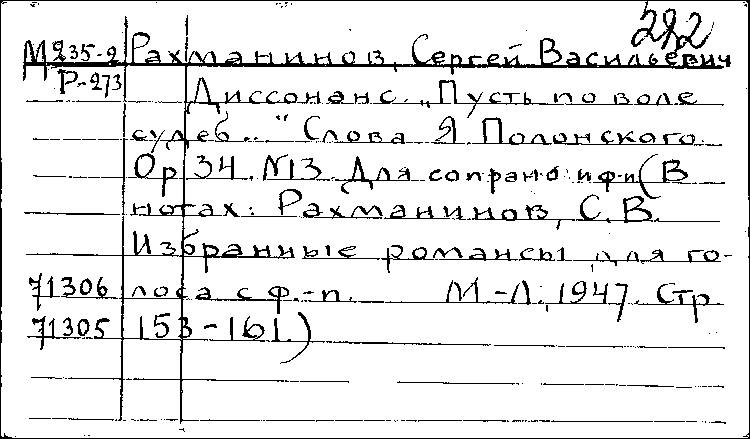 292
М235-2 Рахманинов, Сергей Васильевич
Р-273 Диссонанс. „Пусть по воле
судеб..." Слова Я Полонского.
Op 34. N13. Для сопрано и ф-п (В
нотах: Рахманинов, С. В.
Избранные романсы для го-
71306 лоса с ф.-п. М.-Л., 1947. Стр
71305 153-161.)